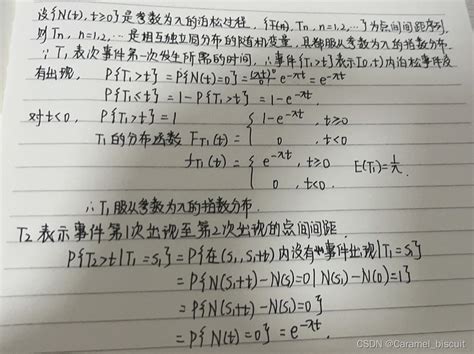 设{N(t), t≥0}是参数为λ的泊松过程, {T(n), Tn, n=1,2,…}为点间间距序列,
则Tn, n=1,2,…是相互独立同分布的随机变量,且都服从参数为λ的指数分布.
∵T1表次事件第一次发生所需的时间, ∴事件{T1>t}表示[0,t)内泊松事件没
有出现, P{T1>t}=P{N(t)=0}=(λt)^0 e^-λt=e^-λt
P{T1≤t}=1-P{T1>t}=1-e^-λt.
对t<0, P{T1>t}=1 { 1-e^-λt, t≥0
T1的分布函数 F_T1(t)= { 0, t<0
f_T1(t)= { e^-λt, t≥0 E(T1)=1/λ.
{ 0, t<0.
∴T1服从参数为λ的指数分布.
T2表示事件第1次出现至第2次出现的点间间距.
P{T2>t|T1=s1}=P{在(s1,s1+t)内没有事件出现|T1=s1}
=P{N(s1+t)-N(s1)=0|N(s1)-N(0)=1}
=P{N(s1+t)-N(s1)=0}
=P{N(t)=0}=e^-λt.
CSDN @Caramel_biscuit